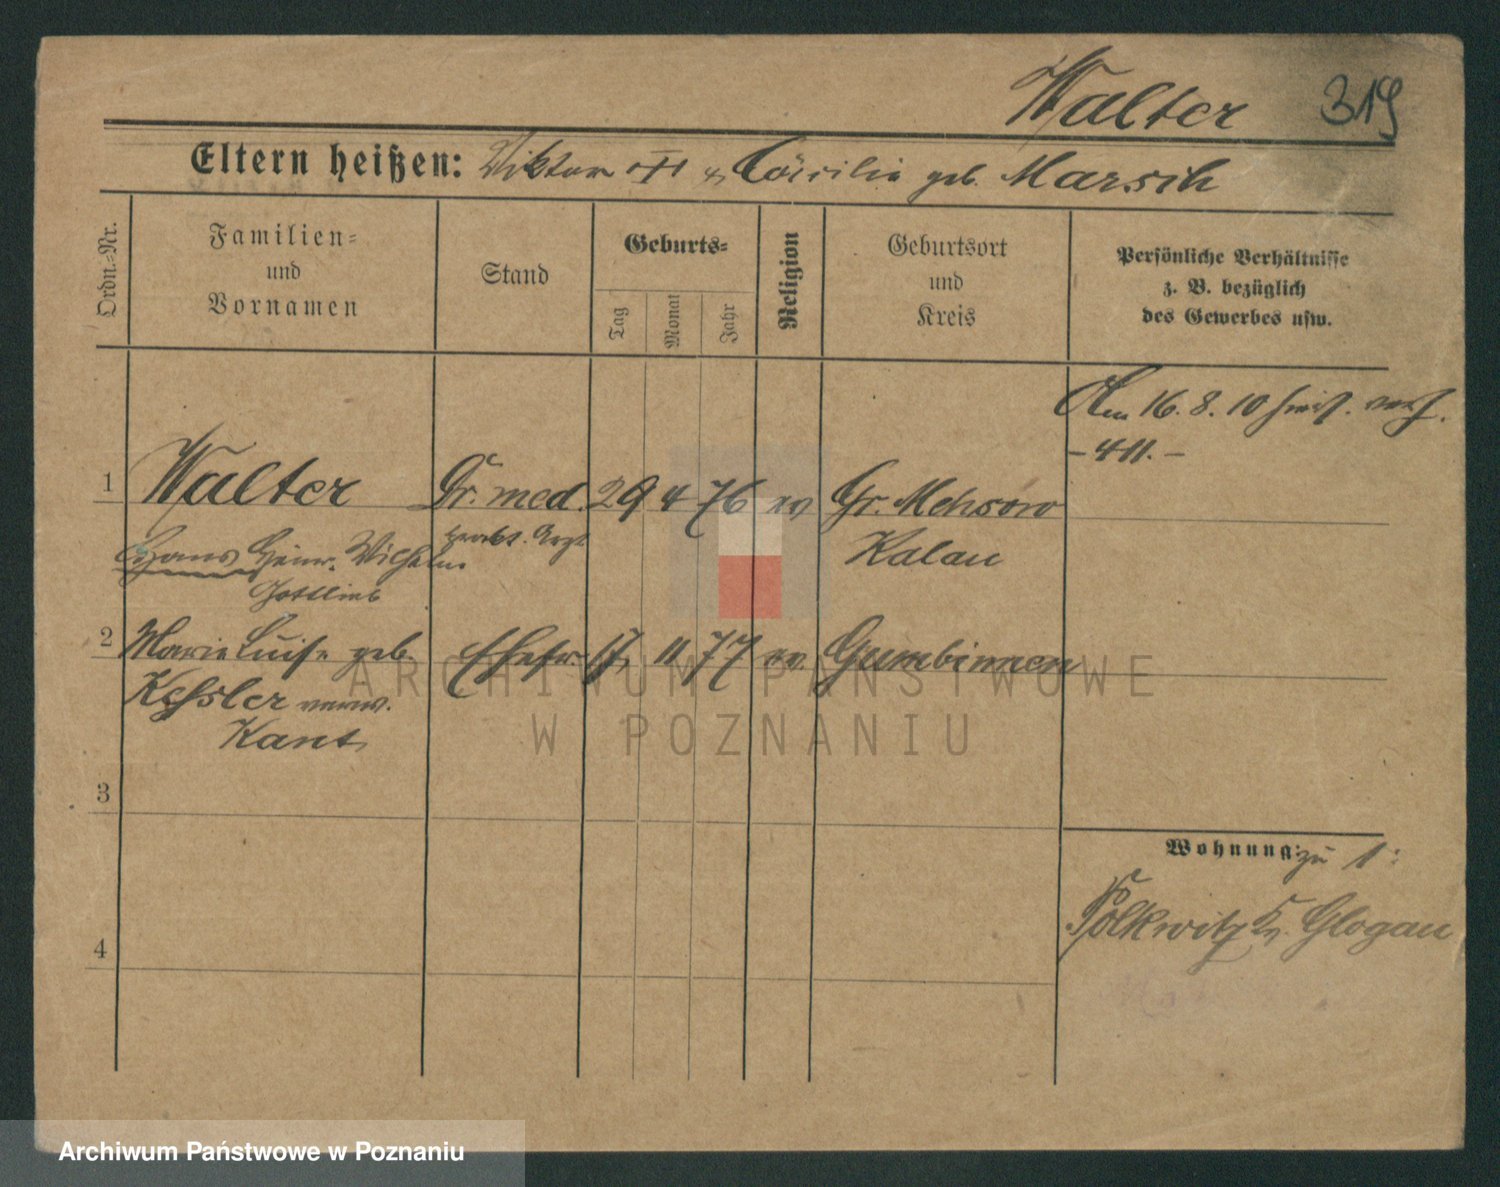 Walter 319
Eltern heißen: Viktor & Cäcilie geb. Marsch
Ordn.-Nr.
Familien-
und
Vornamen
Stand
Geburts-
Tag
Monat
Jahr
Religion
Geburtsort
und
Kreis
Persönliche Verhältnisse
z. B. bezüglich
des Gewerbes usw.
Am 16. 8. 10
- 411. -
1 Walter Dr. med. 29 4 76 ev Gr. Mehsow
prakt. Arzt Kalau
Hans Heinr. Wilhelm
Gottlieb
2 Marie Luise geb. Ehefr. 17 11 77 ev. Gumbinnen
Kessler verw.
Kant
3
4
Wohnung: zu 1:
Polkwitz K. Glogau
ARCHIWUM PAŃSTWOWE
W POZNANIU
Archiwum Państwowe w Poznaniu